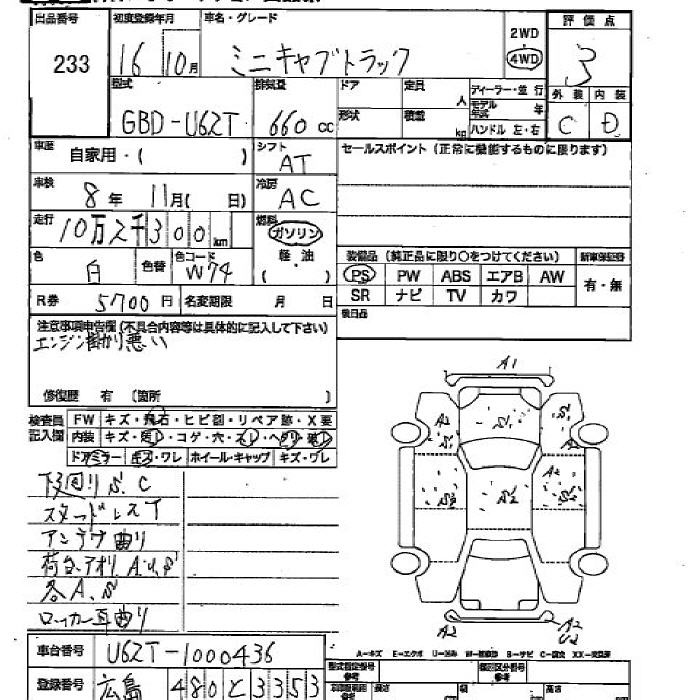 出品番号 初度登録年月 車名・グレード 評価点
233 16 10月 ミニキャブトラック 2WD 4WD 3
型式 排気量 ドア 定員 ディーラー・並行 外装 内装
GBD-U62T 660cc 人 モデル年式 年 C D
形状 積載 kg ハンドル 左・右
車歴 自家用・( ) シフト AT セールスポイント (正常に機能するものに限ります)
車検 8年 11月( 日) 冷房 AC
走行 10万2千300km 燃料 ガソリン 軽油 ( )
色 白 色替 色コード W74
装備品 (純正品に限り○をつけてください) 新車保証書
PS PW ABS エアB AW 有・無
SR ナビ TV カワ
R券 5700円 名変期限 月 日 後日品
注意事項申告欄 (不具合内容等は具体的に記入して下さい)
エンジン掛かり悪い
修復歴 有 〔箇所 〕
検査員記入欄 FW キズ・飛石・ヒビ割・リペア跡・X要
内装 キズ・コゲ・穴・スレ・ヘタリ
ドアミラー キズ・ワレ ホイール・キャップ キズ・ワレ
下回りS.C
スタッドレスT
アンテナ曲り
荷台アオリA.U.S
各A.S
ロッカー耳曲り
A1
A2 S1 S1 A2
S3 S2 A2 S2
A2 A2 U2
A-キズ E-エクボ U-凹み W-補修跡 S-サビ C-腐食 XX-交換済
車台番号 U62T-1000436
登録番号 広島 480と3353
型式指定番号 参考 類別区分番号 参考
長さ 幅 高さ